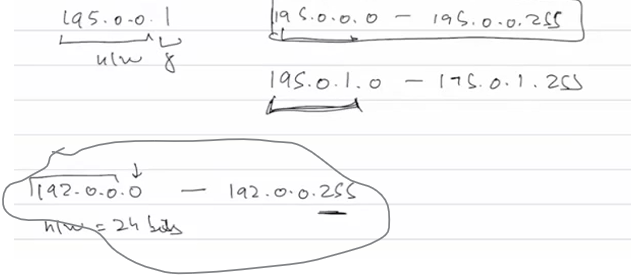 195.0.0.1
n/w 8
195.0.0.0 - 195.0.0.255
195.0.1.0 - 195.0.1.255
192.0.0.0 - 192.0.0.255
n/w = 24 bits